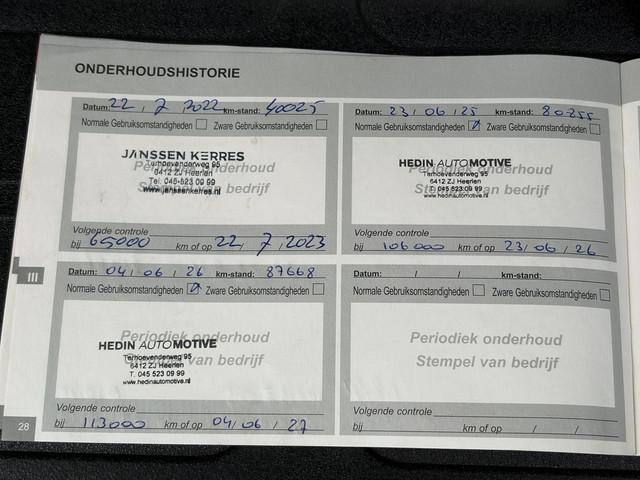 ONDERHOUDSHISTORIE
Datum: 22 / 7 / 2022 km-stand: 40025
Normale Gebruiksomstandigheden Zware Gebruiksomstandigheden
JANSSEN KERRES
Terhoevenderweg 95
6412 ZJ Heerlen
Tel. 045-523 09 99
www.janssenkerres.nl
Periodiek onderhoud
Stempel van bedrijf
Volgende controle
bij 65000 km of op 22 / 7 / 2023
Datum: 23 / 06 / 25 km-stand: 80255
Normale Gebruiksomstandigheden Zware Gebruiksomstandigheden
HEDIN AUTOMOTIVE
Terhoevenderweg 95
6412 ZJ Heerlen
T. 045 523 09 99
www.hedinautomotive.nl
Periodiek onderhoud
Stempel van bedrijf
Volgende controle
bij 106000 km of op 23 / 06 / 26
III
Datum: 04 / 06 / 26 km-stand: 87668
Normale Gebruiksomstandigheden Zware Gebruiksomstandigheden
HEDIN AUTOMOTIVE
Terhoevenderweg 95
6412 ZJ Heerlen
T. 045 523 09 99
www.hedinautomotive.nl
Periodiek onderhoud
Stempel van bedrijf
Volgende controle
bij 113000 km of op 04 / 06 / 27
Datum: / / km-stand:
Normale Gebruiksomstandigheden Zware Gebruiksomstandigheden
Periodiek onderhoud
Stempel van bedrijf
Volgende controle
bij km of op / /
28